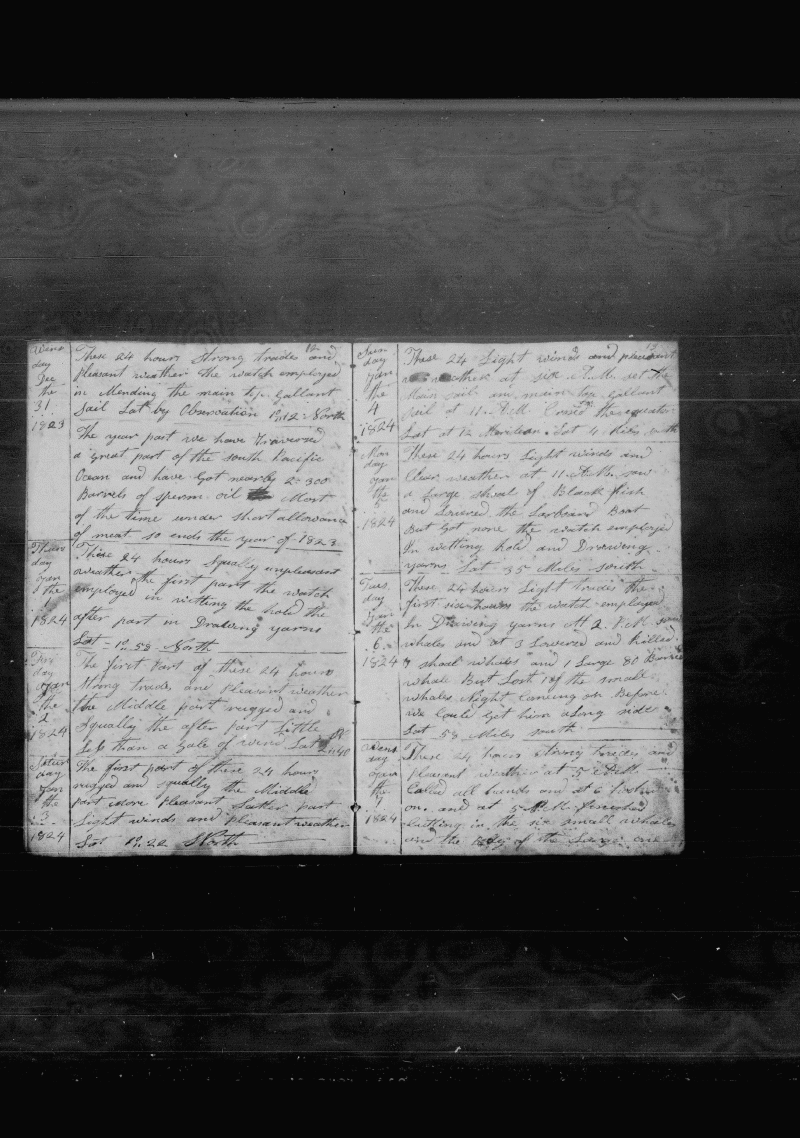 Wens
day
Dec
the
31
1823
These 24 hours Strong trades and
pleasant weather the watch employed
in Mending the main top gallant
Sail Lat by Observation North
The year past we have Traversed
a great part of the south Pacific
Ocean and have Got nearly 2=300
Barrels of sperm oil Most
of the time under short allowance
of meat so ends the year of 1823
Thurs
day
Jan
the
1824
These 24 hours Squally unpleasant
weather the first part the watch
employed in wetting the hold the
after part in Drawing yarns
Lat = 1°.58 North
Fri
day
Jan
the
2
1824
The first Part of these 24 hours
Strong trades and pleasant weather
the Middle part rugged and
Squally the after part Little
Less than a Gale of wind Lat
Satur
day
Jan
the
3
1824
The first part of these 24 hours
rugged and squally the Middle
part more Pleasant Latter part
Light winds and pleasant weather
Lat 1°.22 North
13
Sun
day
Jan
the
4
1824
These 24 Light winds and pleasant
weather at six A.M. set the
Main sail and main top gallant
sail at 11 A.M. Crossd the equator
Lat at 12 Meridean Lat 4 Miles south
Mon
day
Jan
the
1824
These 24 hours Light winds and
Clear weather at 11 A.M. saw
a Large shoal of Black fish
and Lowered the Larboard Boat
But Got none the watch employed
In wetting hold and Drawing
yarns Lat 35 Miles south
Tues
day
Jan
the
6
1824
These 24 hours Light trades the
first six hours the watch employed
In Drawing yarns At 2 P.M. saw
whales and at 3 Lowered and Killed
7 shoal whales and 1 Large 80 Barrel
whale But Lost 1 of the small
whales Night Coming on Before
we Could Get him along side
Lat 58 Miles south
Wens
day
Jan
the
7
1824
These 24 hours strong trades and
pleasent weather at 5 A.M.
Called all hands and at 6
on and at 5 P.M. finished
Cutting in the six small whales
and the Body of the Large one